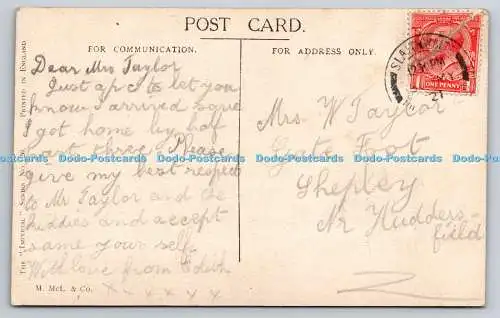 POST CARD.
FOR COMMUNICATION.
FOR ADDRESS ONLY.
Dear Mrs Taylor
Just a p c to let you
know I arrived
I got home by half
past three. Please
give my best respect
to Mr Taylor and the
kiddies and accept
same your self
With love from Edith
x - x x x x
Mrs. W Taylor
Gate Foot
Shepley
Nr Hudders-
field
ONE PENNY
21
THE "IMPERIAL" SERIES
PRINTED IN ENGLAND
M. McL. & Co.
Dodo-Postcards Dodo-Postcards Dodo-Postcards Dodo-Postcards